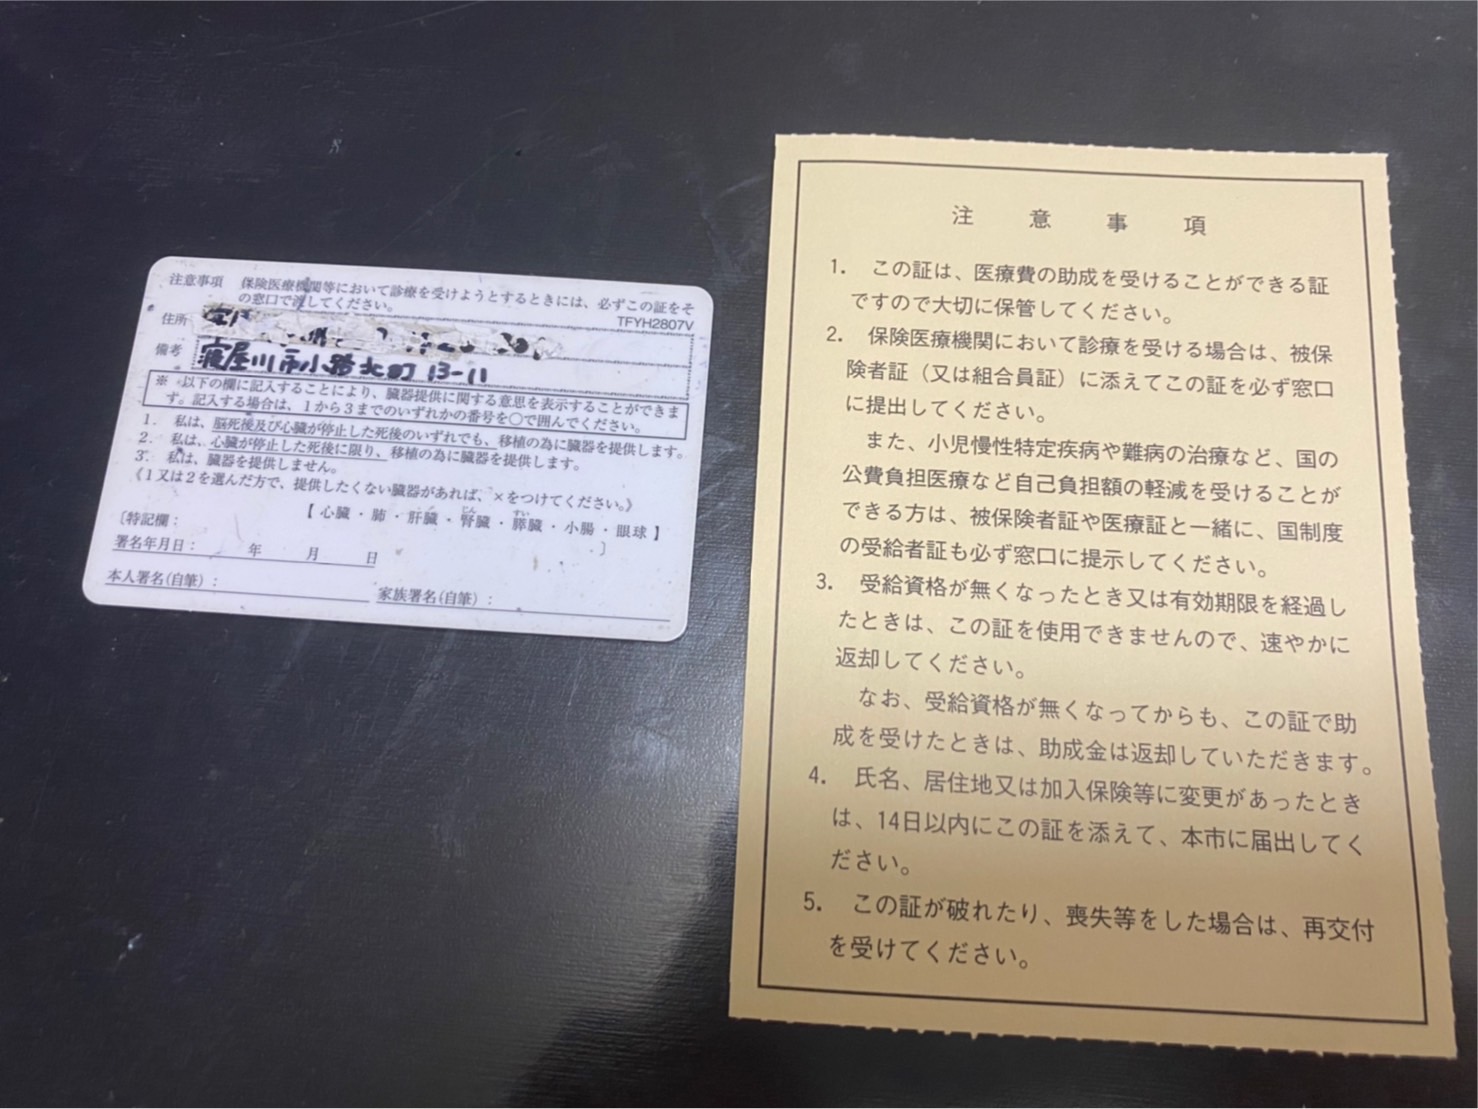 注意事項 保険医療機関等において診療を受けようとするときには、必ずこの証をそ
の窓口で渡してください。
TFYH2807V
住所
備考 寝屋川市小路北町13-11
※ 以下の欄に記入することにより、臓器提供に関する意思を表示することができま
す。記入する場合は、1から3までのいずれかの番号を○で囲んでください。
1. 私は、脳死後及び心臓が停止した死後のいずれでも、移植の為に臓器を提供します。
2. 私は、心臓が停止した死後に限り、移植の為に臓器を提供します。
3. 私は、臓器を提供しません。
《1又は2を選んだ方で、提供したくない臓器があれば、×をつけてください。》
【 心臓・肺・肝臓・腎臓・膵臓・小腸・眼球 】
〔特記欄： 〕
署名年月日： 年 月 日
本人署名(自筆)： 家族署名(自筆)：
注意事項
1. この証は、医療費の助成を受けることができる証
ですので大切に保管してください。
2. 保険医療機関において診療を受ける場合は、被保
険者証（又は組合員証）に添えてこの証を必ず窓口
に提出してください。
また、小児慢性特定疾病や難病の治療など、国の
公費負担医療など自己負担額の軽減を受けることが
できる方は、被保険者証や医療証と一緒に、国制度
の受給者証も必ず窓口に提示してください。
3. 受給資格が無くなったとき又は有効期限を経過し
たときは、この証を使用できませんので、速やかに
返却してください。
なお、受給資格が無くなってからも、この証で助
成を受けたときは、助成金は返却していただきます。
4. 氏名、居住地又は加入保険等に変更があったとき
は、14日以内にこの証を添えて、本市に届出してく
ださい。
5. この証が破れたり、喪失等をした場合は、再交付
を受けてください。